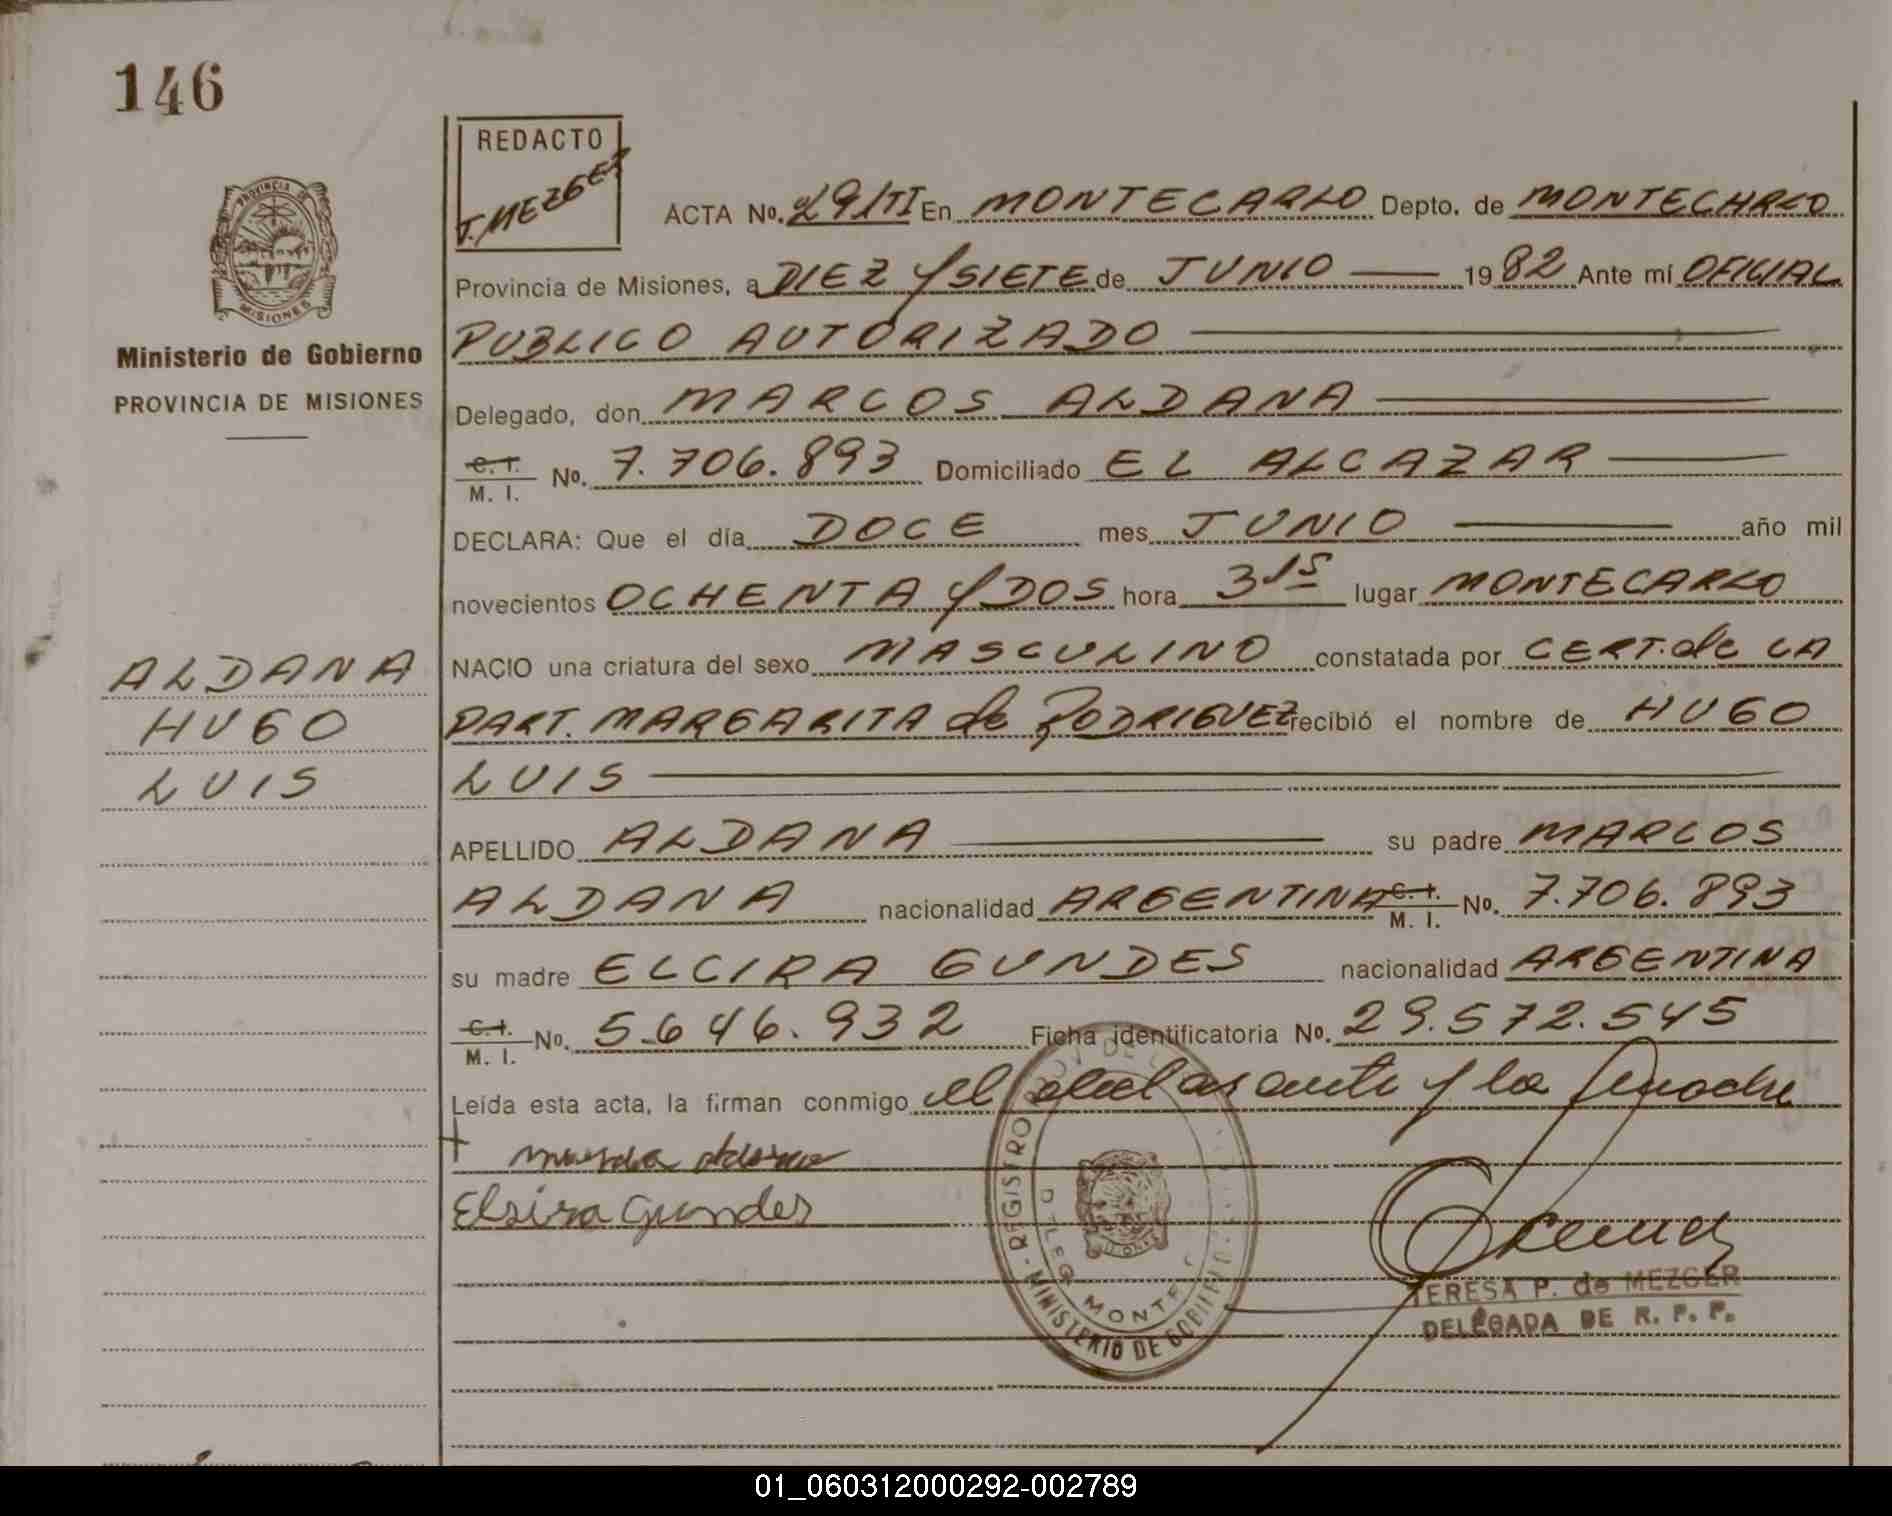 146
REDACTO
T. MEZGER
PROVINCIA DE
MISIONES
Ministerio de Gobierno
PROVINCIA DE MISIONES
ACTA No. 29/TI En MONTECARLO Depto. de MONTECARLO
Provincia de Misiones, a DIEZ y SIETE de JUNIO — 1982 Ante mí OFICIAL
PUBLICO AUTORIZADO —
Delegado, don MARCOS ALDANA —
C. I. / M. I. No. 7.706.893 Domiciliado EL ALCAZAR —
DECLARA: Que el día DOCE mes JUNIO — año mil
novecientos OCHENTA y DOS hora 3 15 lugar MONTECARLO
NACIO una criatura del sexo MASCULINO constatada por CERT. de LA
PART. MARGARITA de RODRIGUEZ recibió el nombre de HUGO
LUIS —
APELLIDO ALDANA — su padre MARCOS
ALDANA nacionalidad ARGENTINA C. I. / M. I. No. 7.706.893
su madre ELCIRA GUNDES nacionalidad ARGENTINA
C. I. / M. I. No. 5.646.932 Ficha identificatoria No. 29.572.545
Leída esta acta, la firman conmigo el declarante y la madre
Elsira Gundes
ALDANA
HUGO
LUIS
REGISTRO
MINISTERIO DE GOBIERNO
TERESA P. de MEZGER
DELEGADA DE R. P. P.
01_060312000292-002789